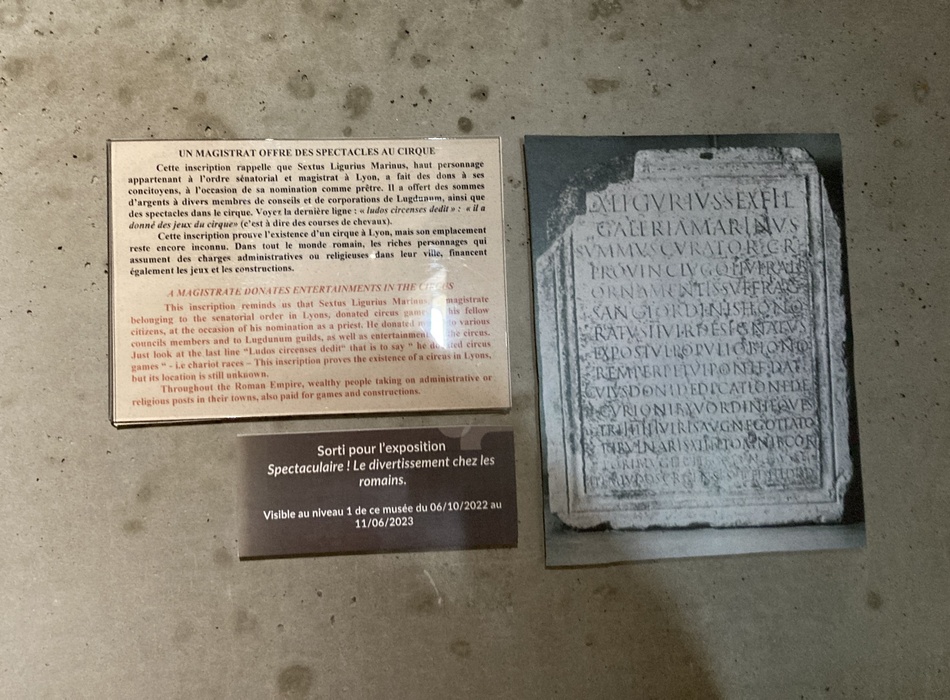 UN MAGISTRAT OFFRE DES SPECTACLES AU CIRQUE
Cette inscription rappelle que Sextus Ligurius Marinus, haut personnage
appartenant à l'ordre sénatorial et magistrat à Lyon, a fait des dons à ses
concitoyens, à l'occasion de sa nomination comme prêtre. Il a offert des sommes
d'argents à divers membres de conseils et de corporations de Lugdunum, ainsi que
des spectacles dans le cirque. Voyez la dernière ligne : « ludos circenses dedit » : « il a
donné des jeux du cirque» (c'est à dire des courses de chevaux).
Cette inscription prouve l'existence d'un cirque à Lyon, mais son emplacement
reste encore inconnu. Dans tout le monde romain, les riches personnages qui
assument des charges administratives ou religieuses dans leur ville, financent
également les jeux et les constructions.
A MAGISTRATE DONATES ENTERTAINMENTS IN THE
This inscription reminds us that Sextus Ligurius Marinus magistrate
belonging to the senatorial order in Lyons, donated circus his fellow
citizens, at the occasion of his nomination as a priest. He donated to various
councils members and to Lugdunum guilds, as well as entertainment the circus.
Just look at the last line "Ludos circenses dedit" that is to say " he donated circus
games " - Le chariot races – This inscription proves the existence of a circus in Lyons,
but its location is still unknown.
Throughout the Roman Empire, wealthy people taking on administrative or
religious posts in their towns, also paid for games and constructions.
Sorti pour l'exposition
Spectaculaire ! Le divertissement chez les
romains.
Visible au niveau 1 de ce musée du 06/10/2022 au
11/06/2023
LIGVRIVSSEXFIL
GALERIAMARINVS
SVMMVSCVRATORCR
PROVINCLVGQIIVIRALIB
ORNAMENTISSVFFRAG
SANCTORDINISHONO
RATVSIIVIRDESIGNATVS
EXPOSTVLPOPVLI